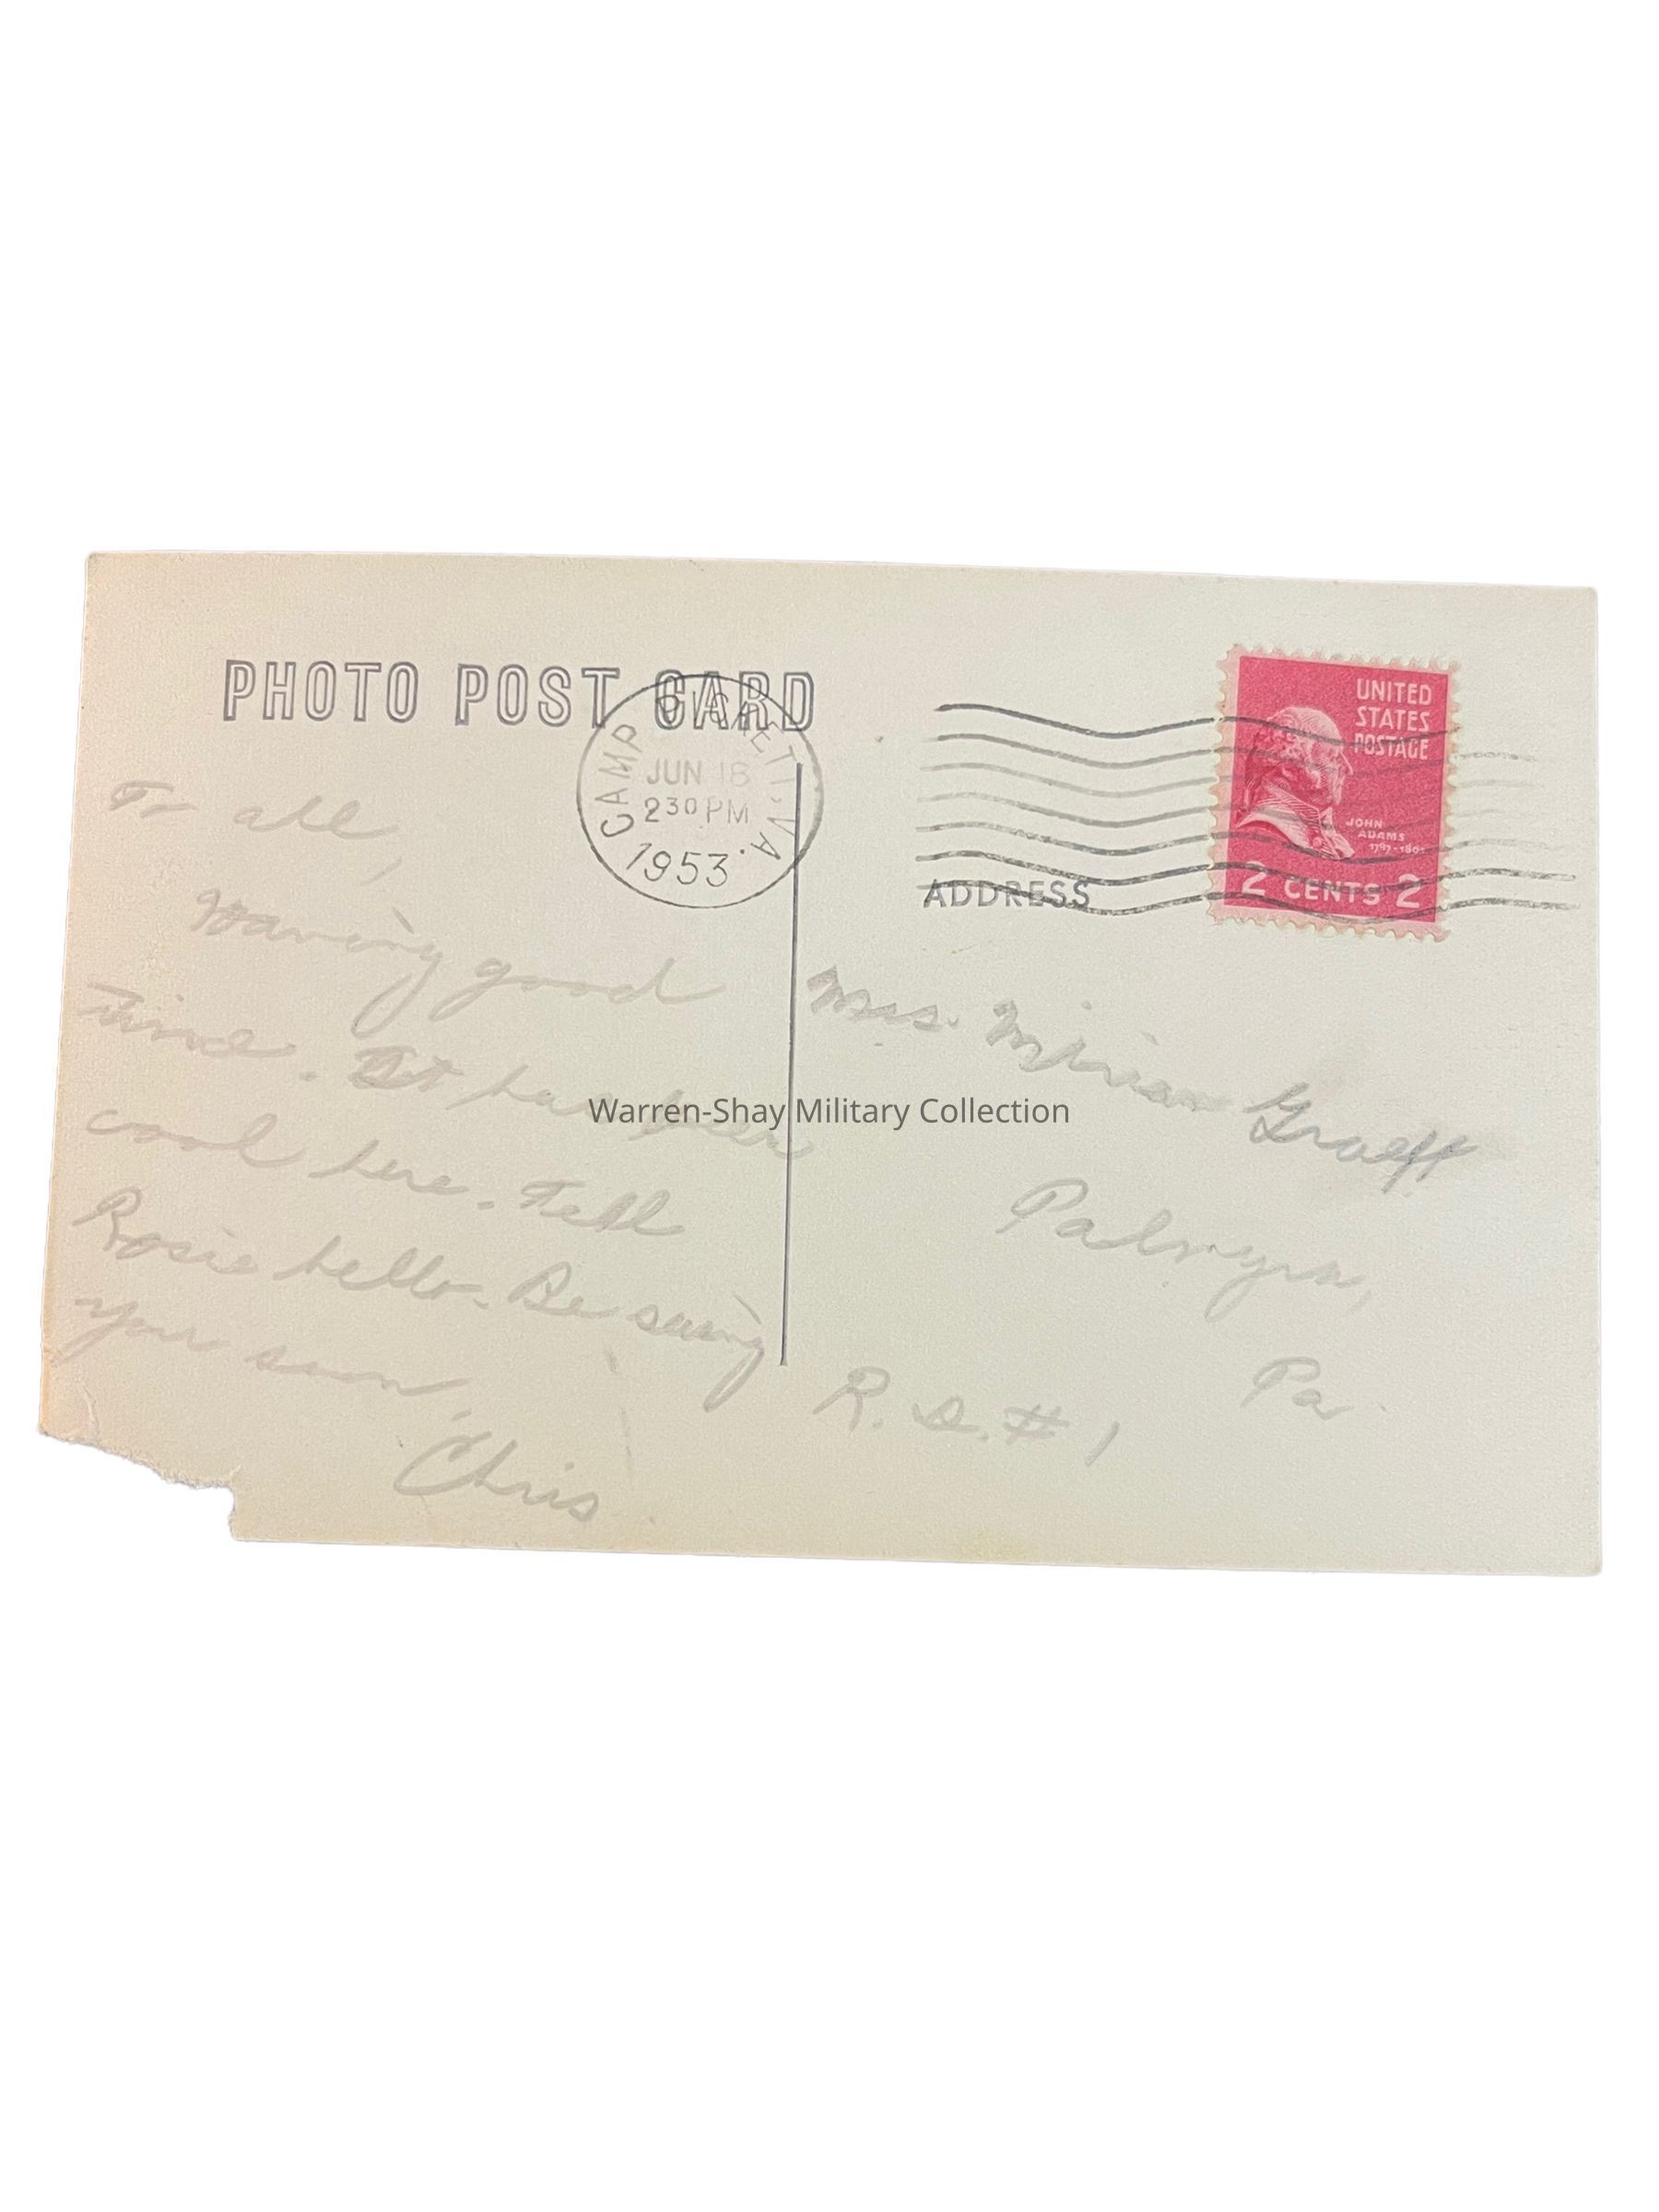 PHOTO POST CARD
CAMP PICKETT, VA.
JUN 18
2 30 PM
1953
UNITED
STATES
POSTAGE
JOHN
ADAMS
1797-1801
2 CENTS 2
ADDRESS
To all,
Having good
time. It has been
cool here. Tell
Rosie hello. Be seeing
you soon,
Chris
Mrs. Miriam Graeff
Palmyra,
Pa.
R.D. #1
Warren-Shay Military Collection